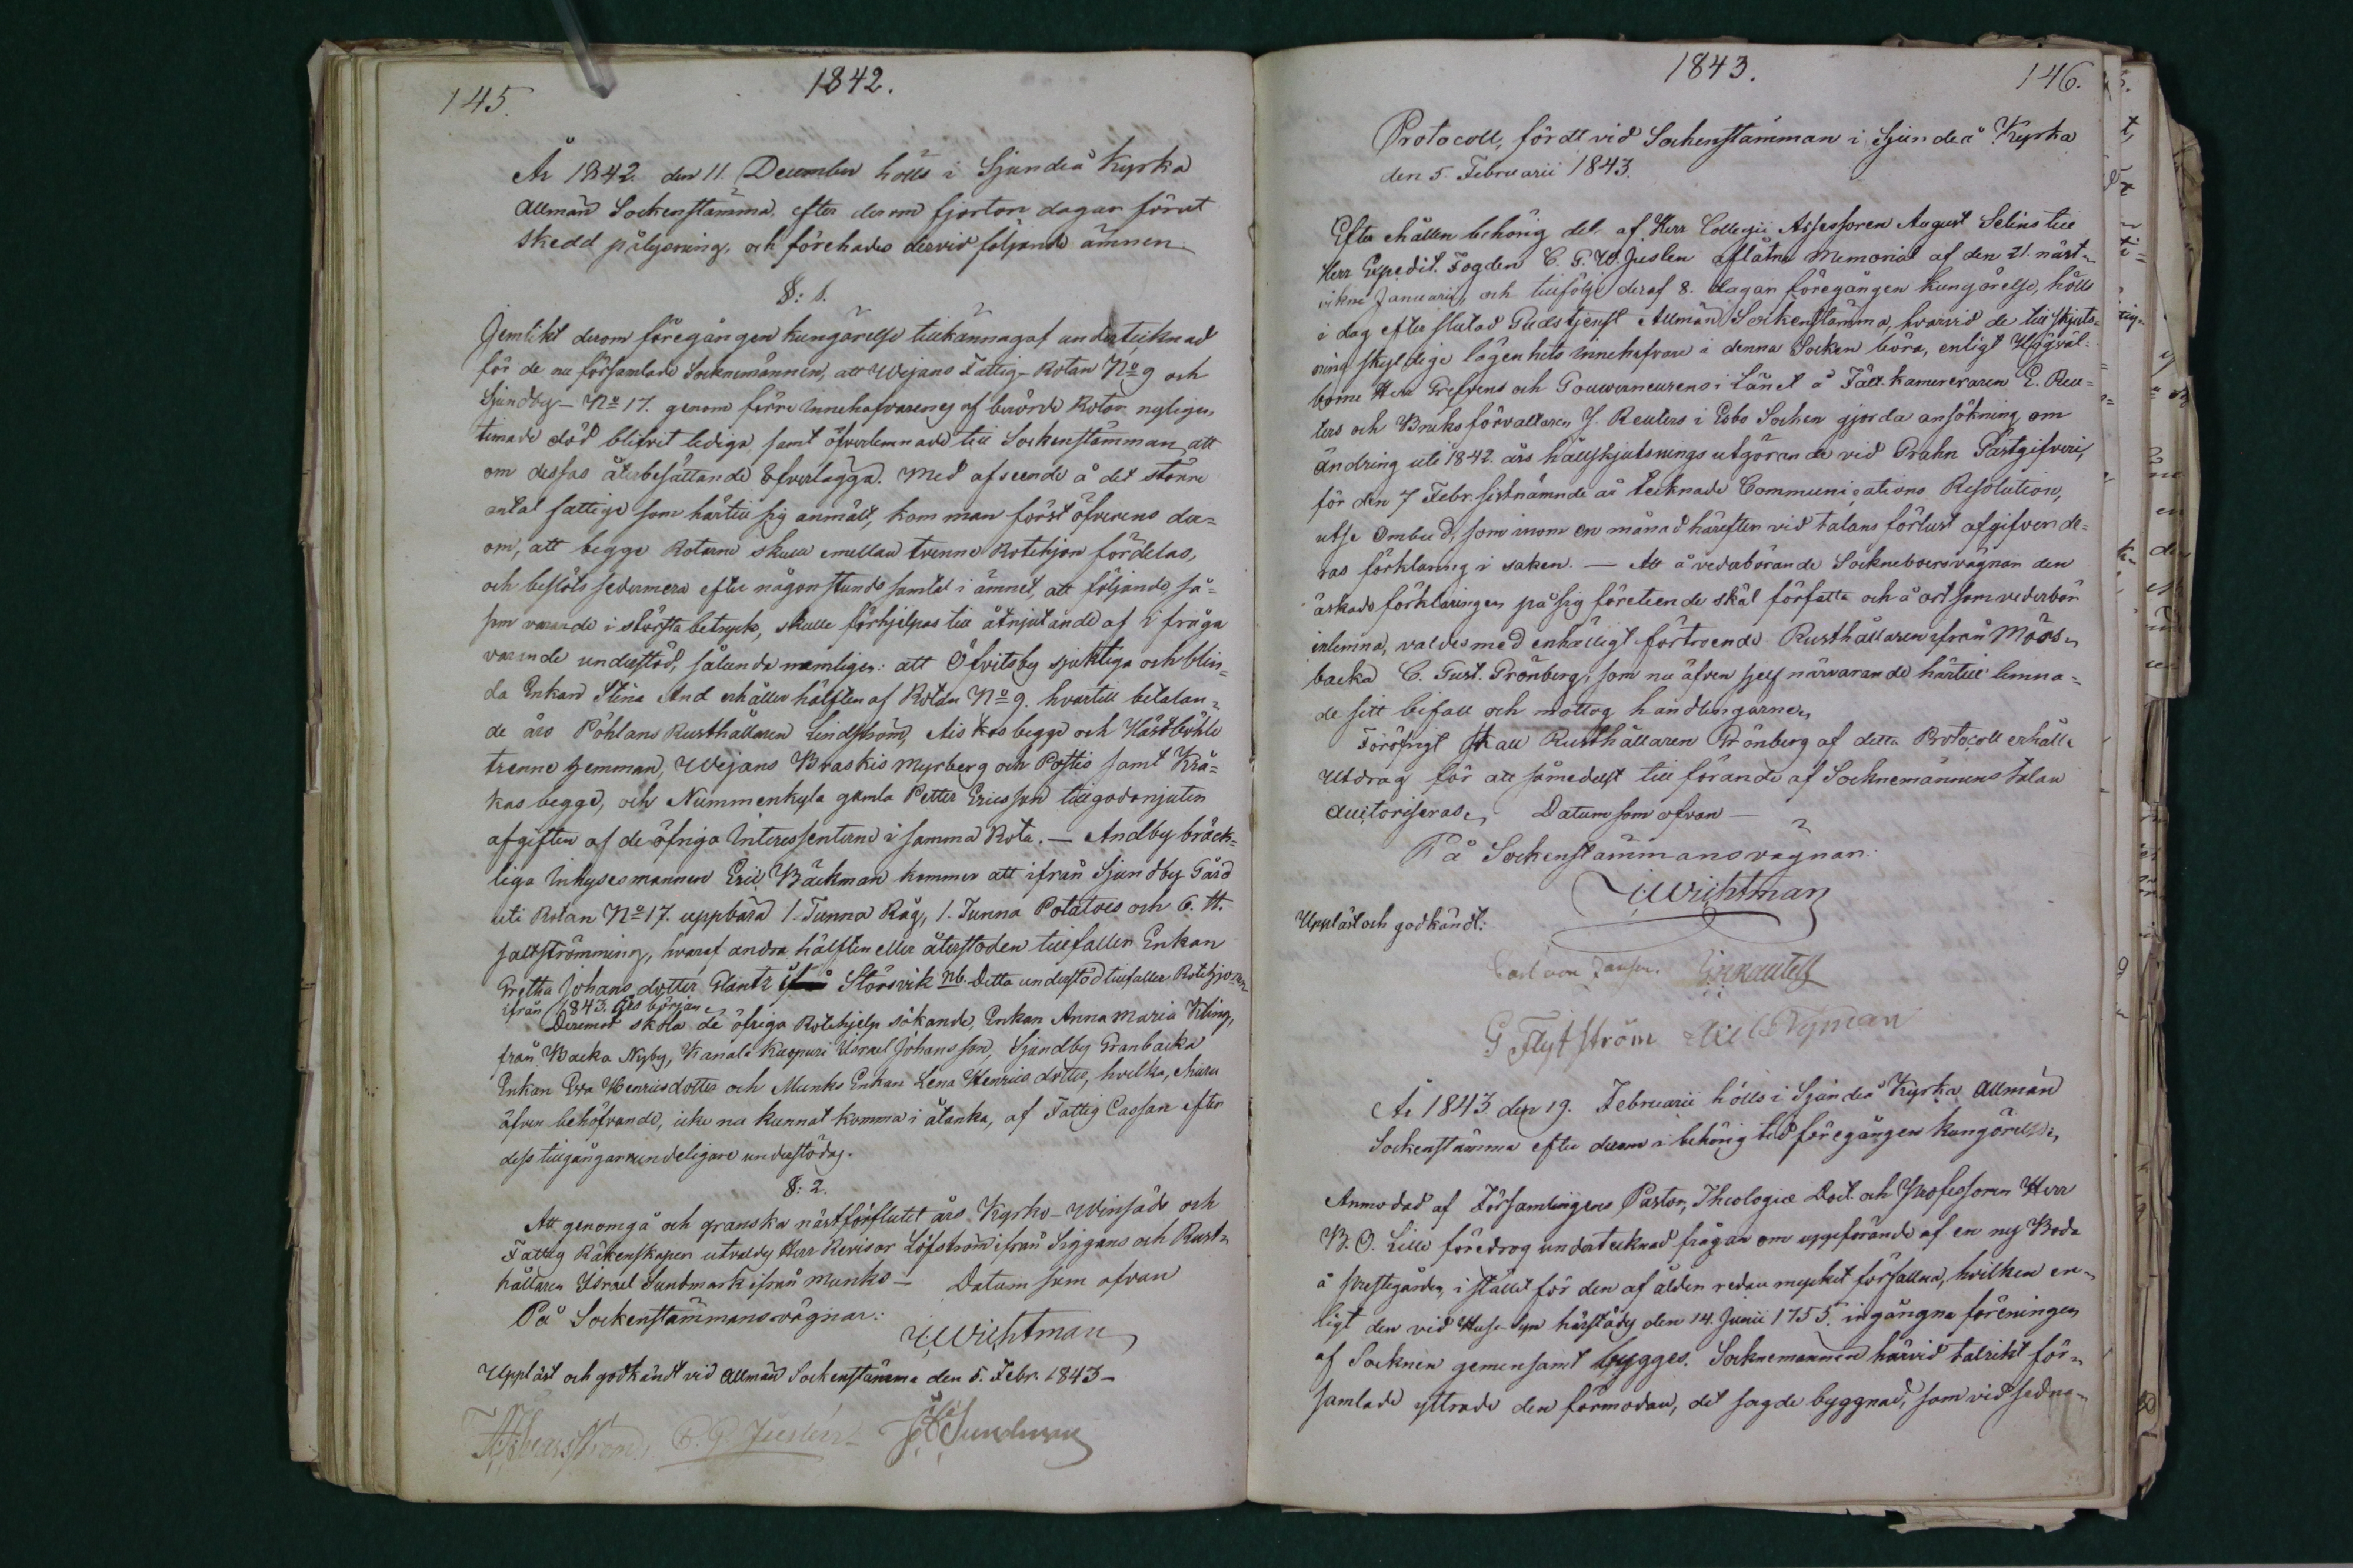 145.
1842.
År 1842 den 11. December hölls i Sjundeå Kyrka
Allmän Sockenstämma, efter derom fjorton dagar förut
skedd pålysning, och förehades dervid följande ämnen.
§: 1.
Jemlikt derom föregången kungörelse tillkännagaf undertecknad
för de nu församlade Socknemännen, att Wejans Fattig-Rotan No 9 och
Sjundby- No 17. genom förre innehafvarenes af berörde Rotor nyligen
timade död blifvit lediga, samt öfverlemnade till Sockenstämman att
om dessas återbesättande öfverlägga. Med afseende å det större
antal fattige som härtill sig anmält, kom man först öfverens der-
om, att begge Rotarne skulle emellan tvenne Rotehjon fördelas,
och beslöts sedermera efter någon stunds samtal i ämnet, att följande, så-
som varande i största betryck, skulle förhjelpas till åtnjutande af i fråga
varande understöd, sålunda nemligen: att Öfvitsby sjukliga och blin-
da Enkan Stina And erhåller hälften af Rotan No 9. hvartill betalan-
de äro Pöhlans Rusthållaren Lindström, Aiskos begge och Hästböhle
trenne hemman, Wejans Braskis Myrberg och Postis samt Krä-
kas begge, och Nummenkyla gamla Petter Ericsson tillgodonjuter
afgiften af de öfriga Interessenterne i samma Rota. — Andby bräck-
liga Inhysesmannen Eric Bäckman kommer att ifrån Sjundby Gård
uti Rotan No 17. uppbära 1. Tunna Råg, 1. Tunna Potatoes och 6. ℔.
saltströmming, hvaraf andra hälften eller återstoden tillfaller Enkan
Gretha Johansdotter Glantz Störsvik NB. Detta understöd tillfaller Rotehjonen
ifrån 1843. års början.
Deremot skola de öfriga Rotehjelp sökande, Enkan Anna Maria Kling,
från Backa Nyby, Kanala Kuopuri Israel Johansson, Sjundby Granbacka
Enkan Eva Henricsdotter och Munks Enkan Lena Henricsdotter, hvilka, ehuru
äfven behöfvande, icke nu kunnat komma i åtanka, af Fattig Cassan efter
dess tillgångar undeligare understödas.
§: 2.
Att genomgå och granska nästförflutet års Kyrko- Winsäds och
Fattig Räkenskaper utvaldes Herr Revisor Löfström ifrån Siggans och Rust-
hållaren Israel Sundmark ifrån Munks — Datum som ofvan
På Sockenstämmans vägnar:
J. Wichtman
Uppläst och godkändt vid Allmän Sockenstämma den 5. Febr. 1843 —
C. G. Juslén
1843.
146.
Protocoll, fördt vid Sockenstämman i Sjundeå Kyrka
den 5. Februarii 1843.
Efter ehållen behörig del, af Herr Collegii Assessoren August Selins till
Herr Expedit. Fogden C. G. W. Juslen aflåtna Memorial af den 21. näst-
vikne Januarii, och tillfölje deraf 8. dagar föregången kungörelse, hölls
i dag efter slutad Gudstjenst Allmän Sockenstämma, hvarvid de till skjuts-
ning skyldige lägenhets innehafvare i denna Socken böra, enligt Högväl-
borne Herr Grefvens och Gouverneurens i Länet å Fält-kamereraren E. Reu-
ters och Bruksförvaltaren J. Reuters i Esbo Socken gjorda ansökning om
ändring uti 1842. års hållskjutsnings utgörande vid Grahn Gästgifveri,
för den 7 Febr. sistnämnde år tecknade Communications Resolution,
utse Ombud, som inom en månad härefter vid talans förlust afgifver de-
ras förklaring i saken. — Att å vederbörande Sockneboers vägnar den
äskade förklaringen på sig företeende skäl författa och å ort som vederbör
inlemna, valdes med enhälligt förtroende Rusthållaren ifrån Mörs-
backa C. Gust. Grönberg, som nu äfven sjelf närvarande härtill lemna-
de sitt bifall och mottog handlingarne.
Föröfrigt skall Rusthållaren Grönberg af detta Protocoll erhålla
Utdrag för att såmedelst till förande af Socknemännens talan
auctoriseras. Datum som ofvan —
På Sockenstämmans vägnar:
J. Wichtman
Uppläst och godkändt:
Carl von
G Flytström Nyman
År 1843 den 19. Februarii hölls i Sjundeå Kyrka Allmän
Sockenstämma efter derom i behörig tid föregången kungörelse.
Anmodad af Församlingens Pastor, Theologiæ Doct. och Professoren Herr
B. O. Lille föredrog undertecknad frågan om uppförande af en ny Boda
å Prestegården, i stället för den af ålder redan mycket förfallna, hvilken en-
ligt den vid Huse-syn härstädes den 14. Junii 1755. ingångna föreningen
af Socknen gemensamt bygges. Socknemännen härvid talrikt för-
samlade yttrade den förmodan, det sagde byggnad, som vid sedna-